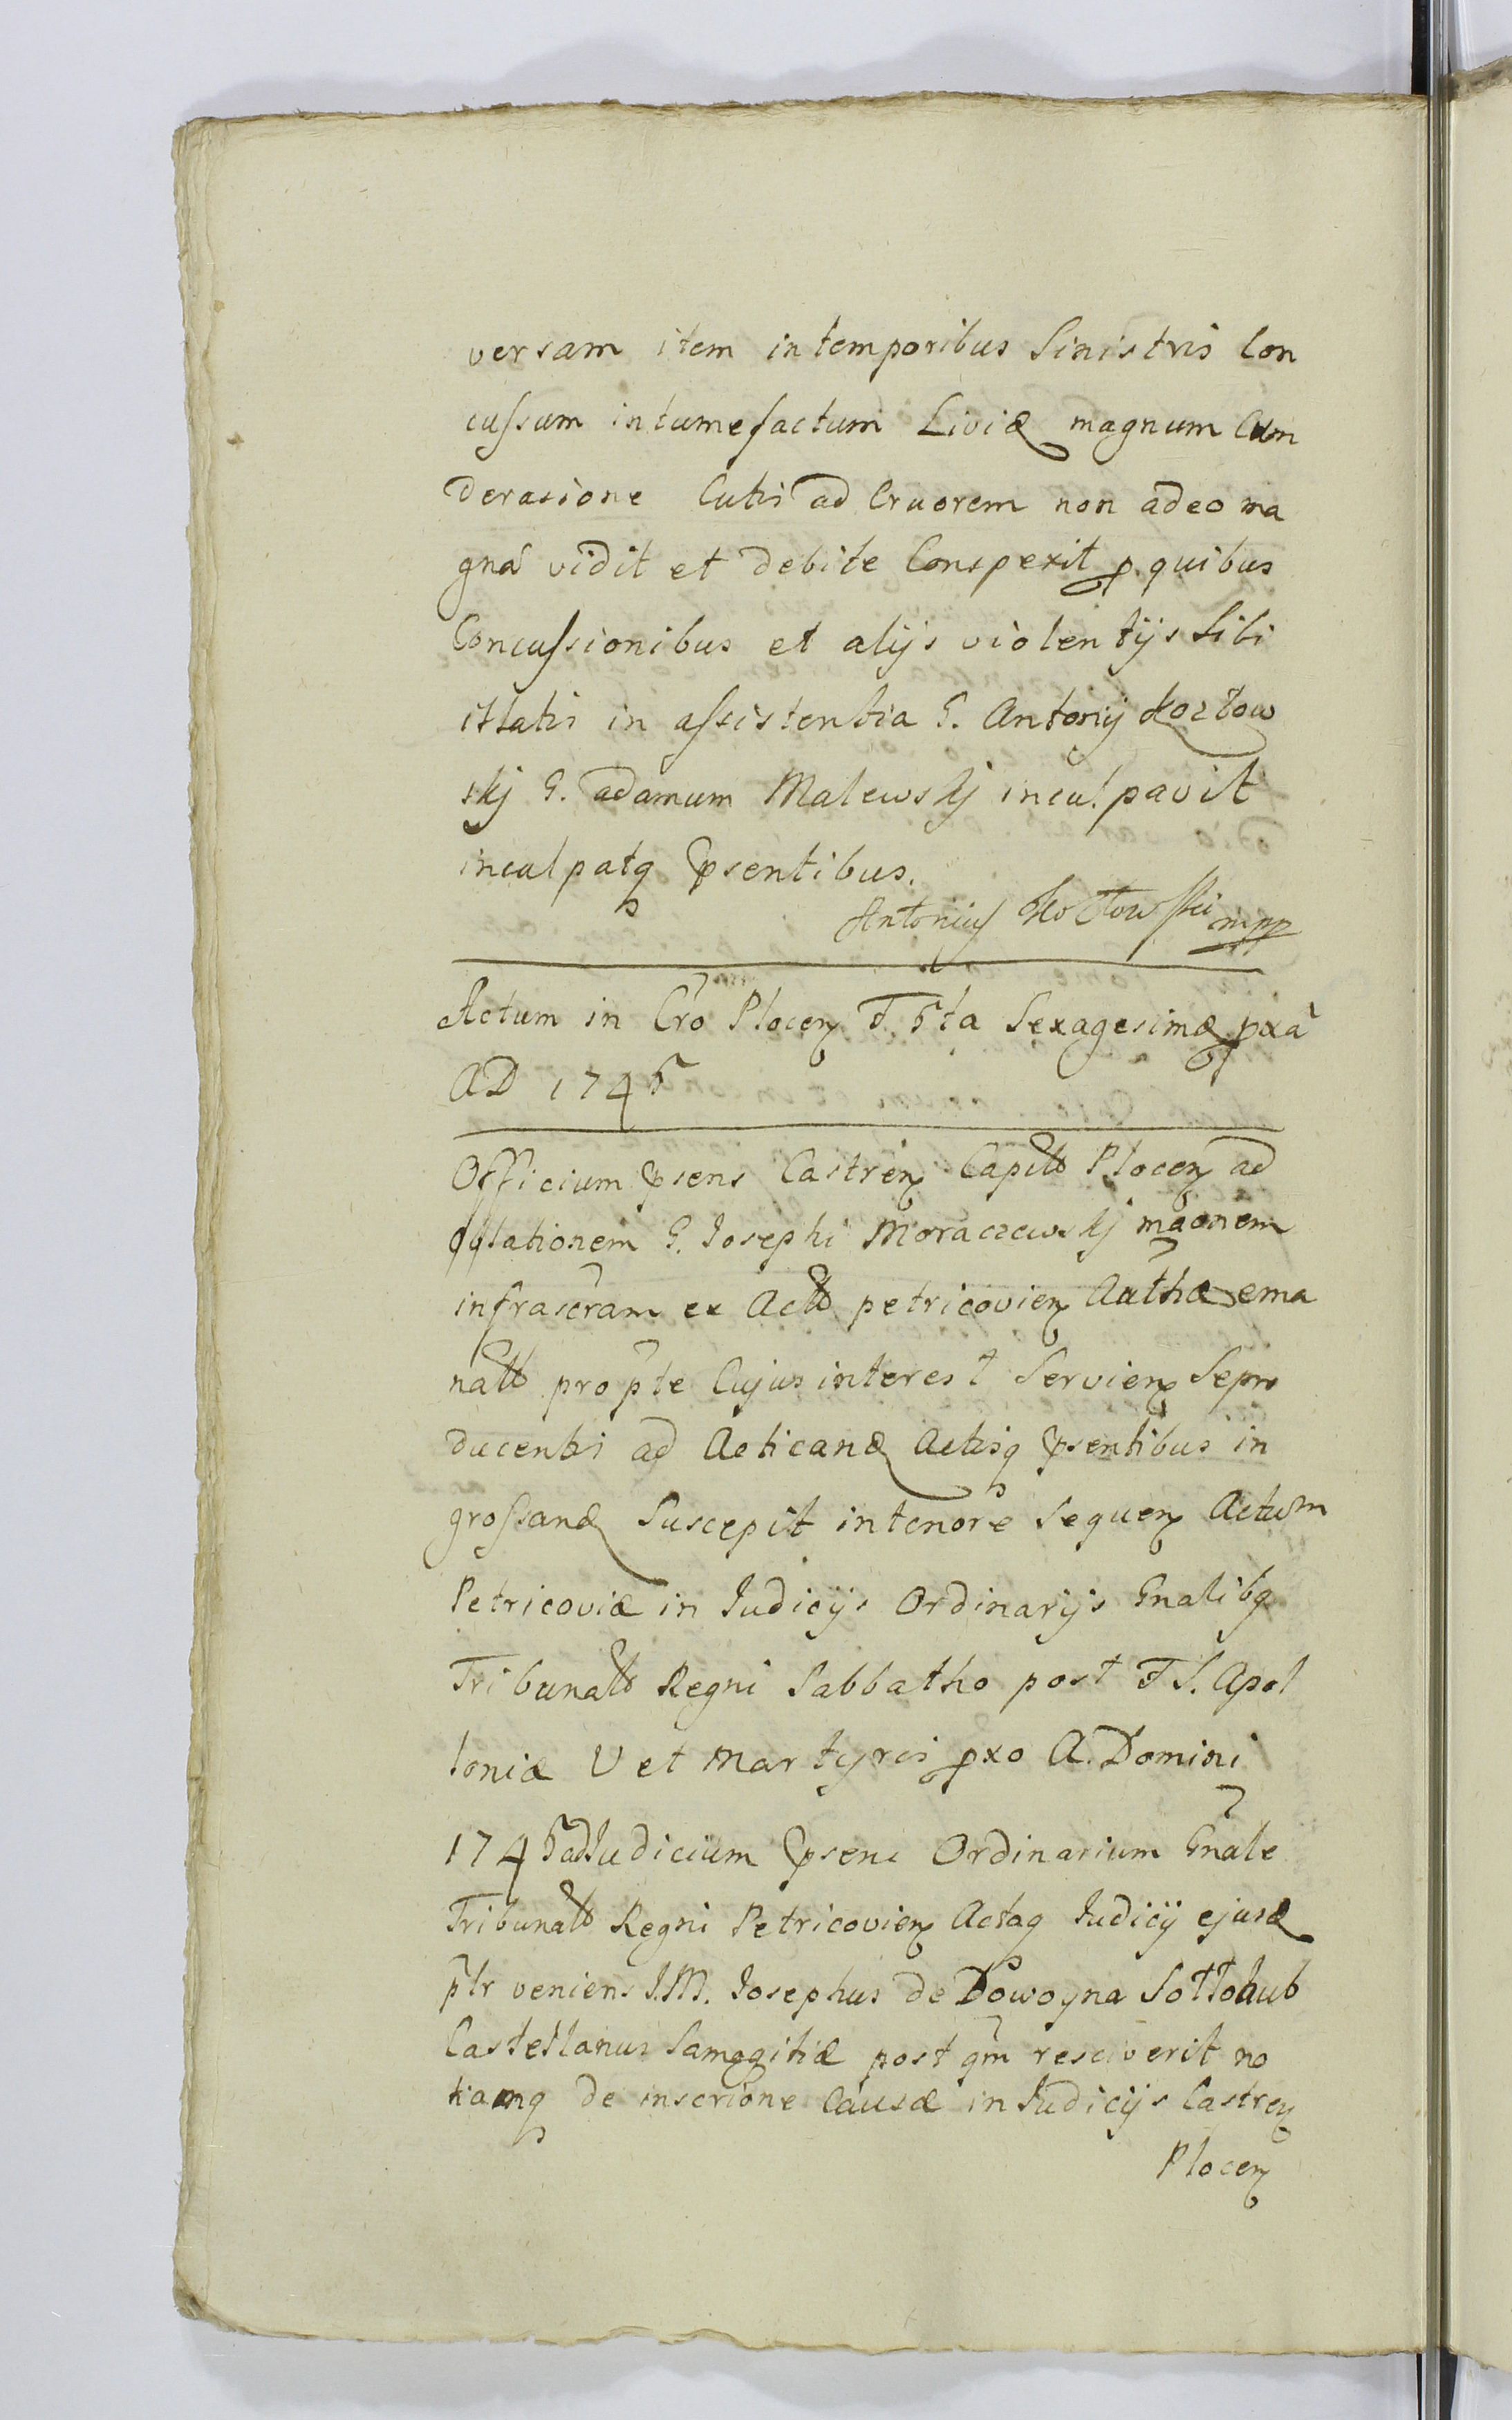 versam item in temporibus Sinistris Con
cussum intumefactum Livid magnum Cum
derasione Cutis ad Cruorem non adeo ma
gna vidit et debite Conspexit p quibus
Concussionibus et alijs violentijs Sibi
illatis in assistentia G. Antonij Kozłow
skj G. adamum Malewskj inculpavit
inculpatq psentibus.
Antonius Kozłowski mpp
Actum in Cro Plocen F. 5ta Sexagesimæ pxa
AD 1745
Officium psens Castren Capitlis Plocen ad
afflationem G. Josephi Moraczewskj maonem
infrascram ex Actis petricovien Authæ ema
natis pro pte Cujus interest Servien Sepro
ducentis ad Acticand Actisq psentibus in
grossand Suscepit in tenore Sequen Actum
Petricoviæ in Judicijs Ordinarijs Gnalibq
Tribunalis Regni Sabbatho post F S. Apol
loniæ V et Martyris pxo A. Domini
1745 ad Judicium psens Ordinarium Gnale
Tribunalis Regni Petricovien Actaq Judicij ejusd
pltr veniens J.M. Josephus de Dowoyna Sołłohub
Castellanus Samogitiæ post qm resciverit no
tiamq de inscrione Causæ in Judicijs Castren
Plocen